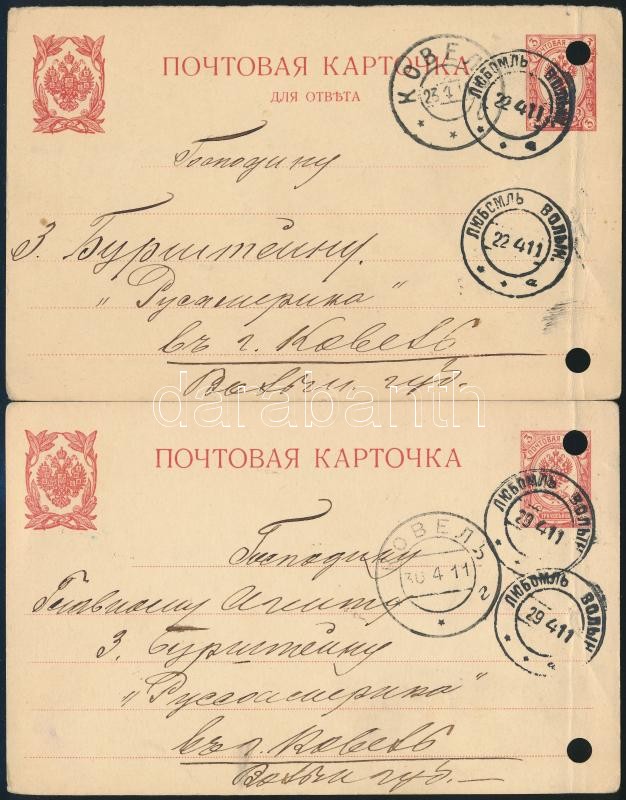 ПОЧТОВАЯ КАРТОЧКА
ДЛЯ ОТВѢТА
КОВЕЛ
23
ЛЮБОМЛЬ ВОЛЫН.
22 4 11
а
3
3
Господину
ЛЮБОМЛЬ ВОЛЫН.
22 4 11
а
З. Бурштейну
„Русамерика“
въ г. Ковель
Волын. губ.
darabanth
ПОЧТОВАЯ КАРТОЧКА
3
ПОЧТОВАЯ
ЛЮБОМЛЬ ВОЛЫН
29 4 11
КОВЕЛЬ
30 4 11
г
ЛЮБОМЛЬ ВОЛЫН
29 4 11
а
Господину
Главному Агенту
З. Бурштейну
„Руссоамерика“
въ г. Ковель
Волын губ.